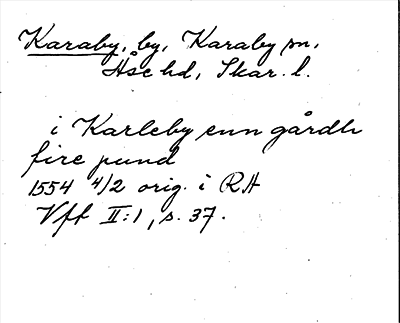 Karaby, by, Karaby sn,
Åse hd, Skar. l.
i Karleby enn gårdh
fire pund
1554 4/2 orig. i RA
Vft II:1, s. 37.